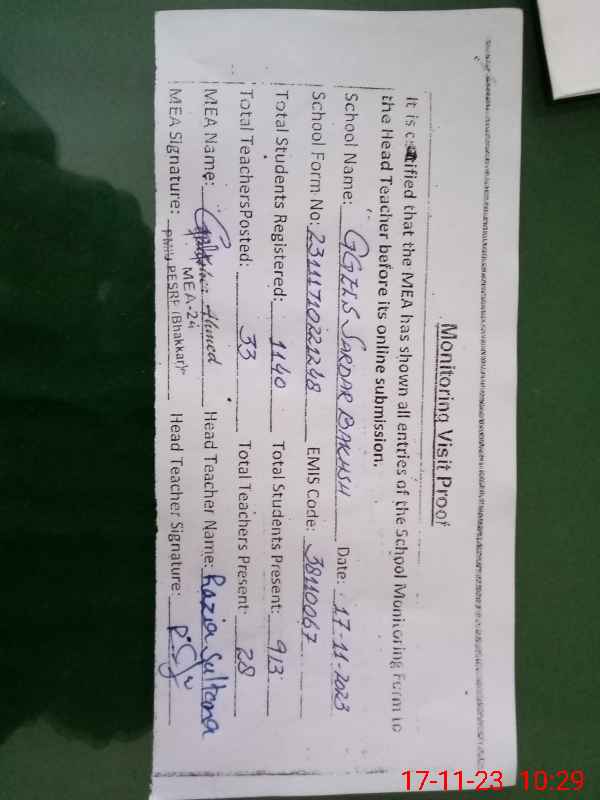 Monitoring Visit Proof
It is certified that the MEA has shown all entries of the School Monitoring Form to
the Head Teacher before its online submission.
School Name: GGELS SARDAR BAKHSH Date: 17-11-2023
School Form No: 23111710221248 EMIS Code: 38110067
Total Students Registered: 1140 Total Students Present: 913
Total TeachersPosted: 33 Total Teachers Present: 28
MEA Name: Ahmed Head Teacher Name: Razia Sultana
MEA-24
MEA Signature: PMIU PESRP (Bhakkar) Head Teacher Signature:
17-11-23 10:29